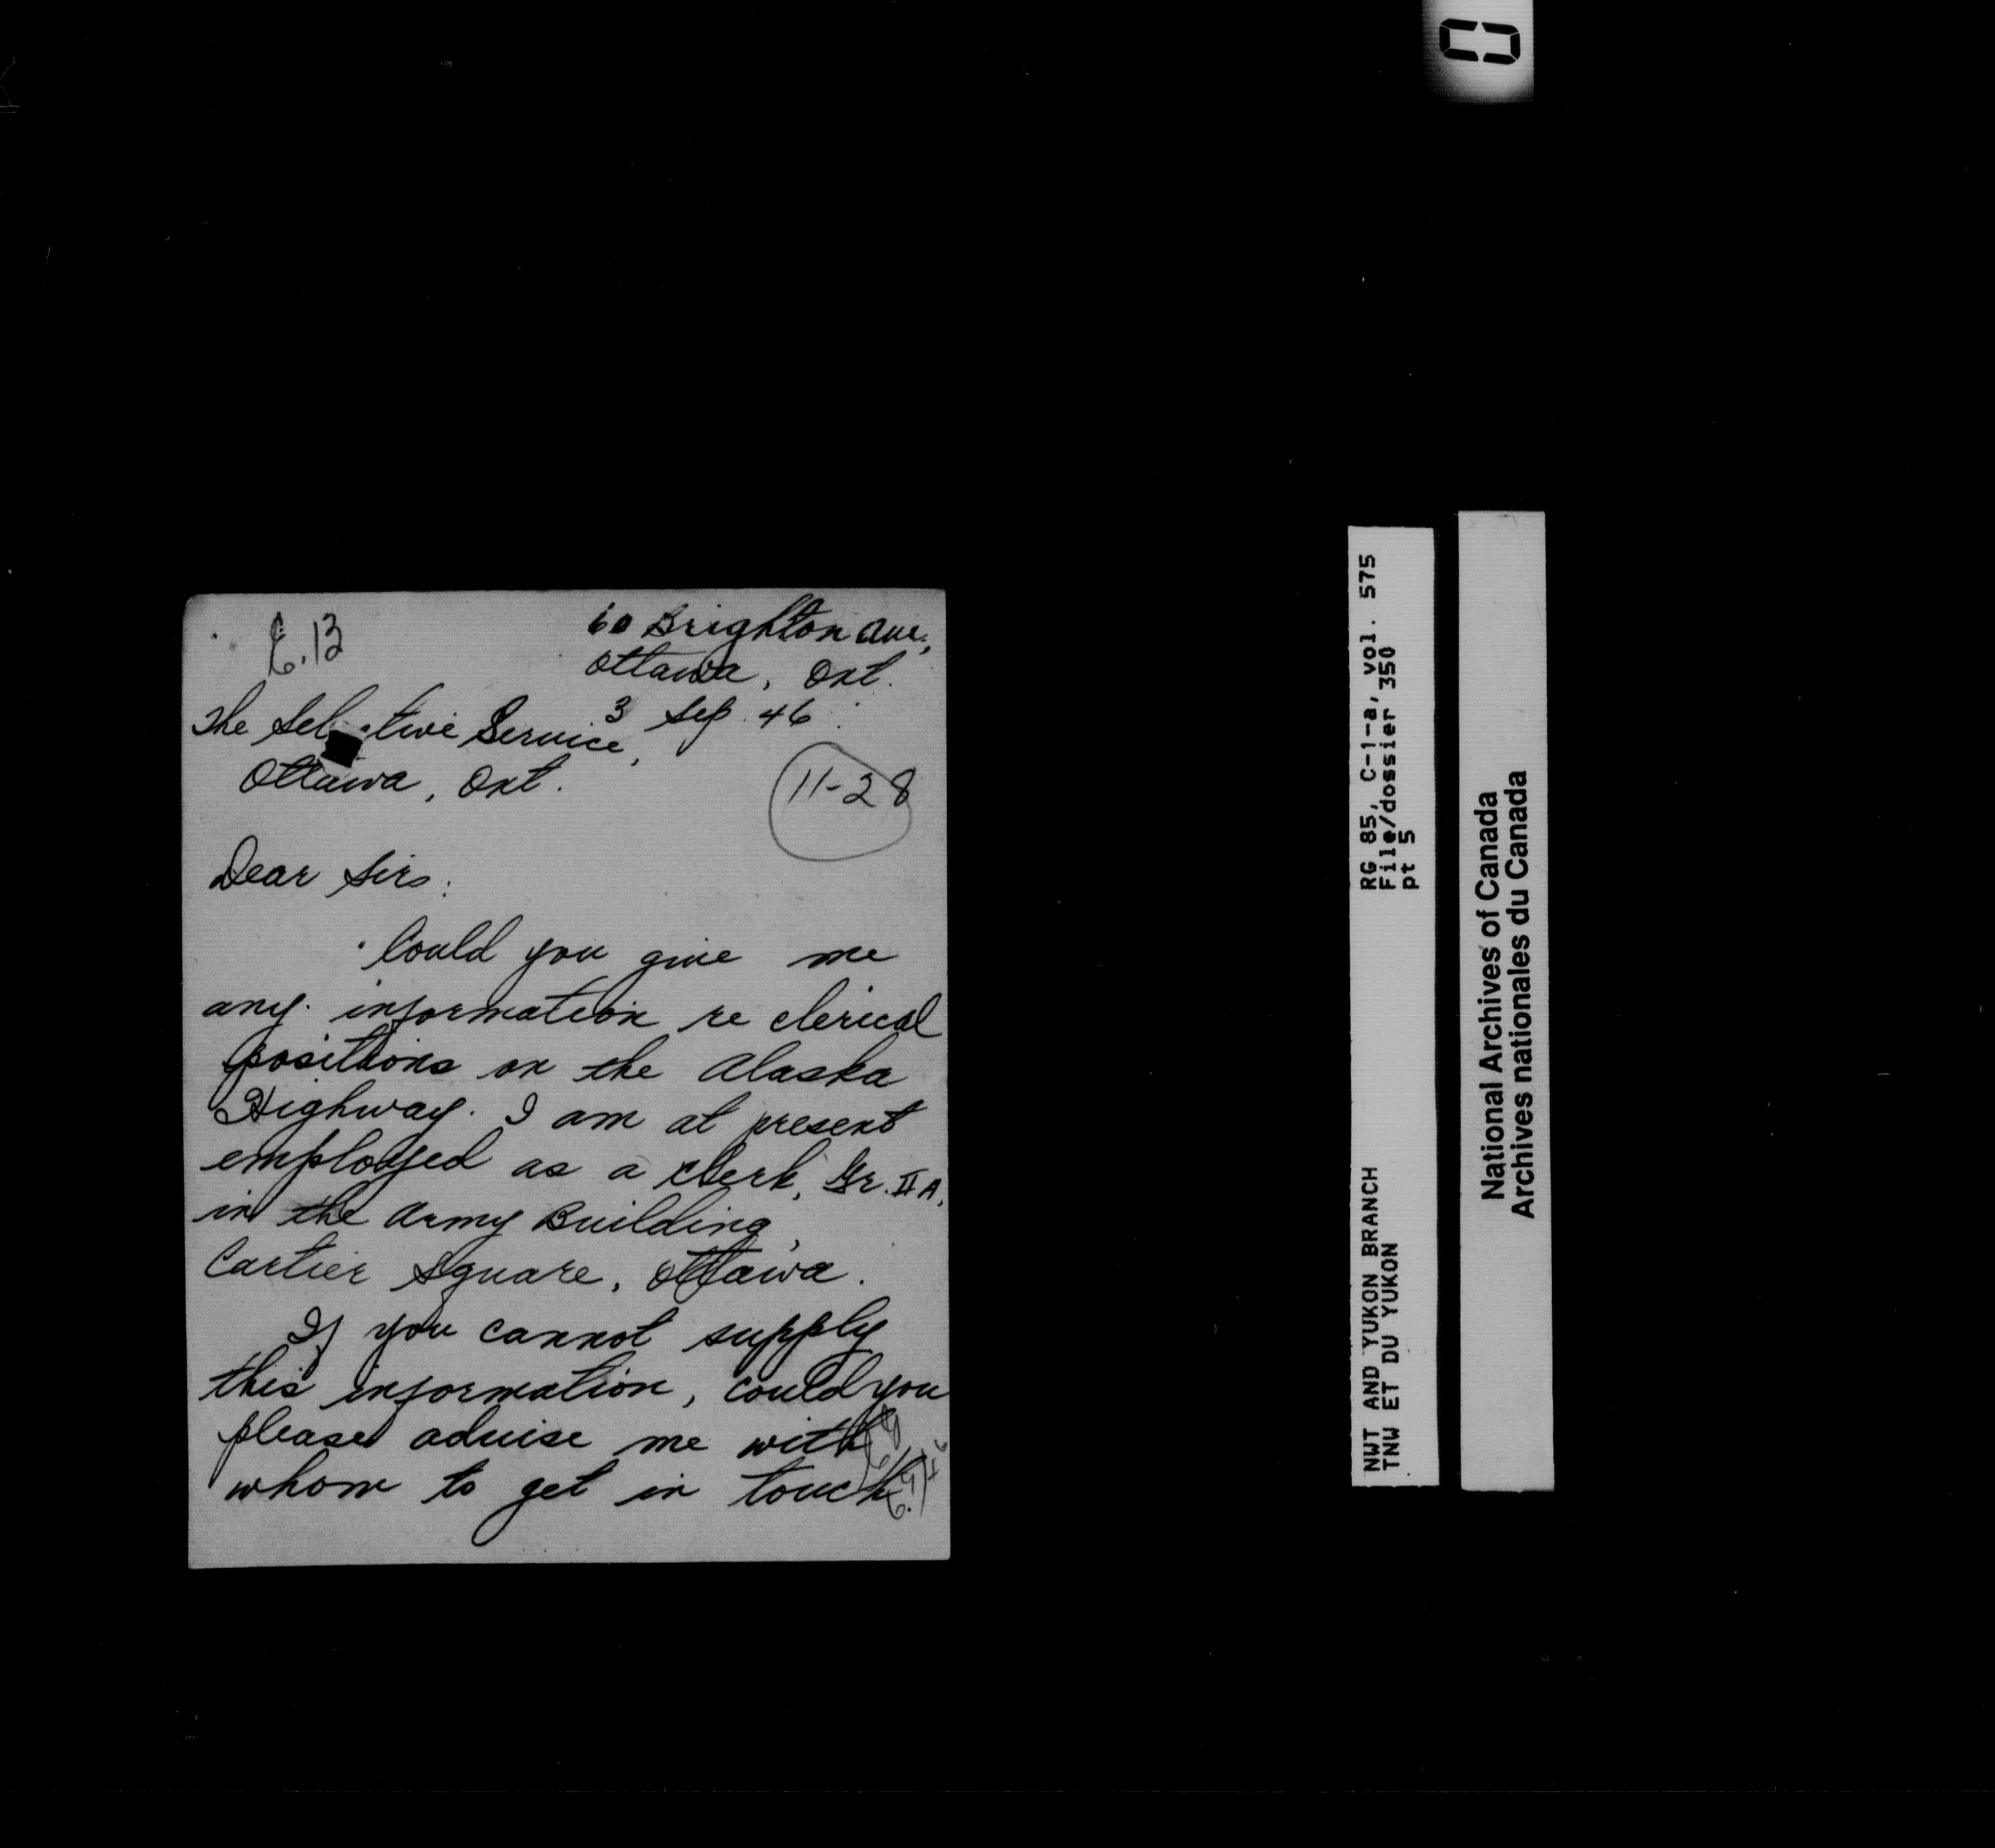 60 Brighton Ave.,
Ottawa, Ont.
3 Sep. 46
The Sel tive Service,
Ottawa, Ont.
11-28
Dear Sirs:
Could you give me
any information re clerical
positions on the Alaska
Highway. I am at present
employed as a clerk, Gr. II A,
in the Army Building,
Cartier Square, Ottawa.
If you cannot supply
this information, could you
please advise me with
whom to get in touch.
RG 85, C-1-a, vol. 575
File/dossier 350
pt 5
NWT AND YUKON BRANCH
TNW ET DU YUKON
National Archives of Canada
Archives nationales du Canada